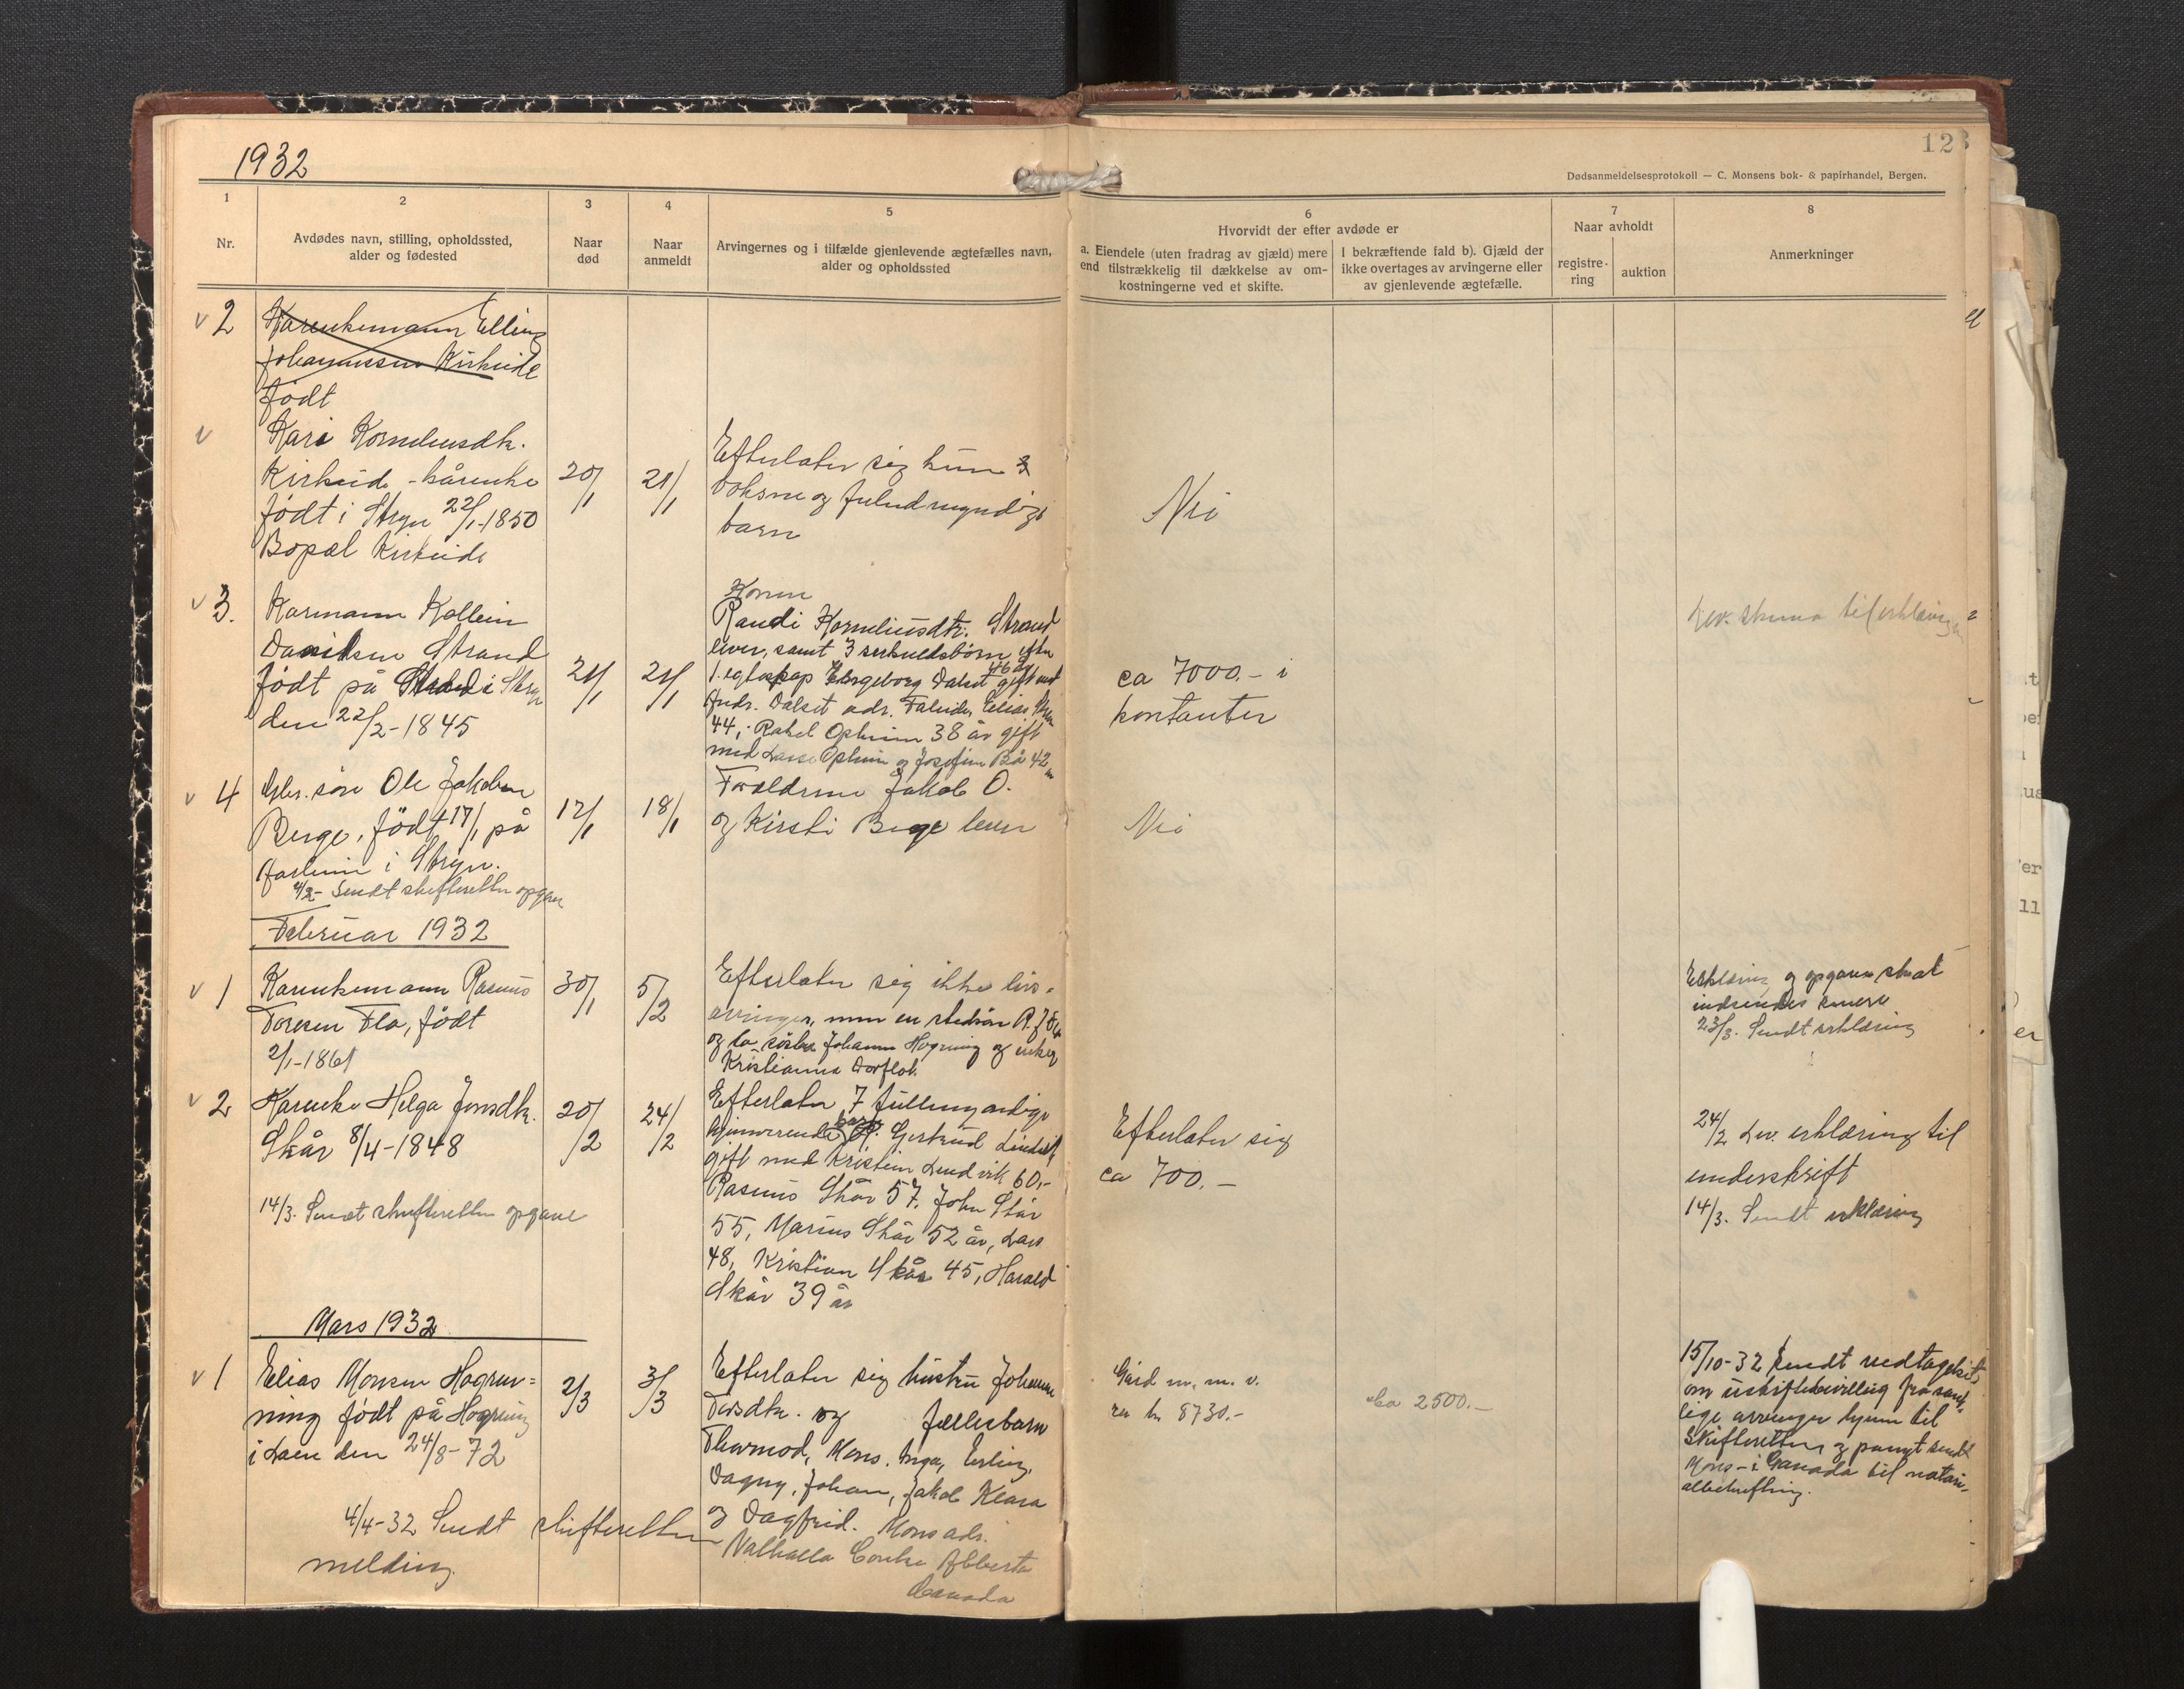 1932
123
Dødsanmeldelsesprotokoll — C. Monsens bok- & papirhandel, Bergen.
1
Nr.
2
Avdødes navn, stilling, opholdssted,
alder og fødested
3
Naar
død
4
Naar
anmeldt
5
Arvingernes og i tilfælde gjenlevende ægtefælles navn,
alder og opholdssted
6
Hvorvidt der efter avdøde er
a. Eiendele (uten fradrag av gjæld) mere
end tilstrækkelig til dækkelse av om-
kostningerne ved et skifte.
I bekræftende fald b). Gjæld der
ikke overtages av arvingerne eller
av gjenlevende ægtefælle.
7
Naar avholdt
registre-
ring
auktion
8
Anmerkninger
v 2
Kårenkemann Elling
Johannessen Kirkeide
født
v
Kari Korneliusdtr.
Kirkeide - kårenke
født i Stryn 22/1-1850
Bopæl Kirkeide
20/1
21/1
Efterlater sig kun 3
voksne og fuldmyndige
barn
Nei
v 3.
Kårmann Kollein
Davidsen Strand
født på Strand i Stryn
den 22/2-1845
21/1
21/1
Konen
Randi Korneliusdtr. Strand
lever, samt 3 særkuldsbørn efter
1. egteskap Ingeborg Dalset 46 år gift med
Andr. Dalset adr. Faleide, Elias
44, Rakel Opheim 38 år gift
med Lasse Opheim og Josefine Bø 42
ca 7000.- i
kontanter
Lev. skema til erklæring
v 4
Gbr. søn Ole Jakobsen
Berge, født 17/1 på
i Stryn.
4/2- Sendt skifteretten opgave
17/1
18/1
Foreldrene Jakob O.
og Kirsti Berge lever
Nei
Februar 1932
v 1
Kårenkemann Rasmus
Toresen Flo, født
2/1-1861
30/1
5/2
Efterlater sig ikke livs-
arvinger, men en stedsøn R. J. Flo
og to søstre Johanne Hogrning og enken
Kristianna
Erklæring og opgave skal
indsendes senere
23/3. Sendt erklæring
v 2
Kårenke Helga Jonsdtr.
Skår 8/4-1848
14/3. Sendt skifteretten opgave
20/2
24/2
Efterlater 7 fullmyndige
hjemværende barn. Gjertrud Lindvik
gift med Kristen Lindvik 60,-
Rasmus Skår 57, John Skår
55, Marius Skår 52 år, Lars
48, Kristian Skår 45, Harald
Skår 39 år
Efterlater sig
ca 700.-
24/2 Lev. erklæring til
underskrift
14/3. Sendt erklæring
Mars 1932
v 1
Elias Monsen Hogren=
ning født på Hogrening
i Loen den 24/8-72
4/4-32 Sendt skifteretten
melding.
2/3
3/3
Efterlater sig hustru Johanne
og fællesbarn
Thormod, Mons, Inga, Erling,
Dagny, Johan, Jakob Klara
og Dagfrid. Mons adr.
Valhalla Centre Alberta
Canada
Gård m. m. v.
ca kr 8730.-
Ca 2500.-
15/10-32 Sendt vedtagelse
om uskiftebevilling fra samt-
lige arvinger hjem til
Skifteretten og pånyt sendt
Mons - i Canada til notari-
albekreftning.